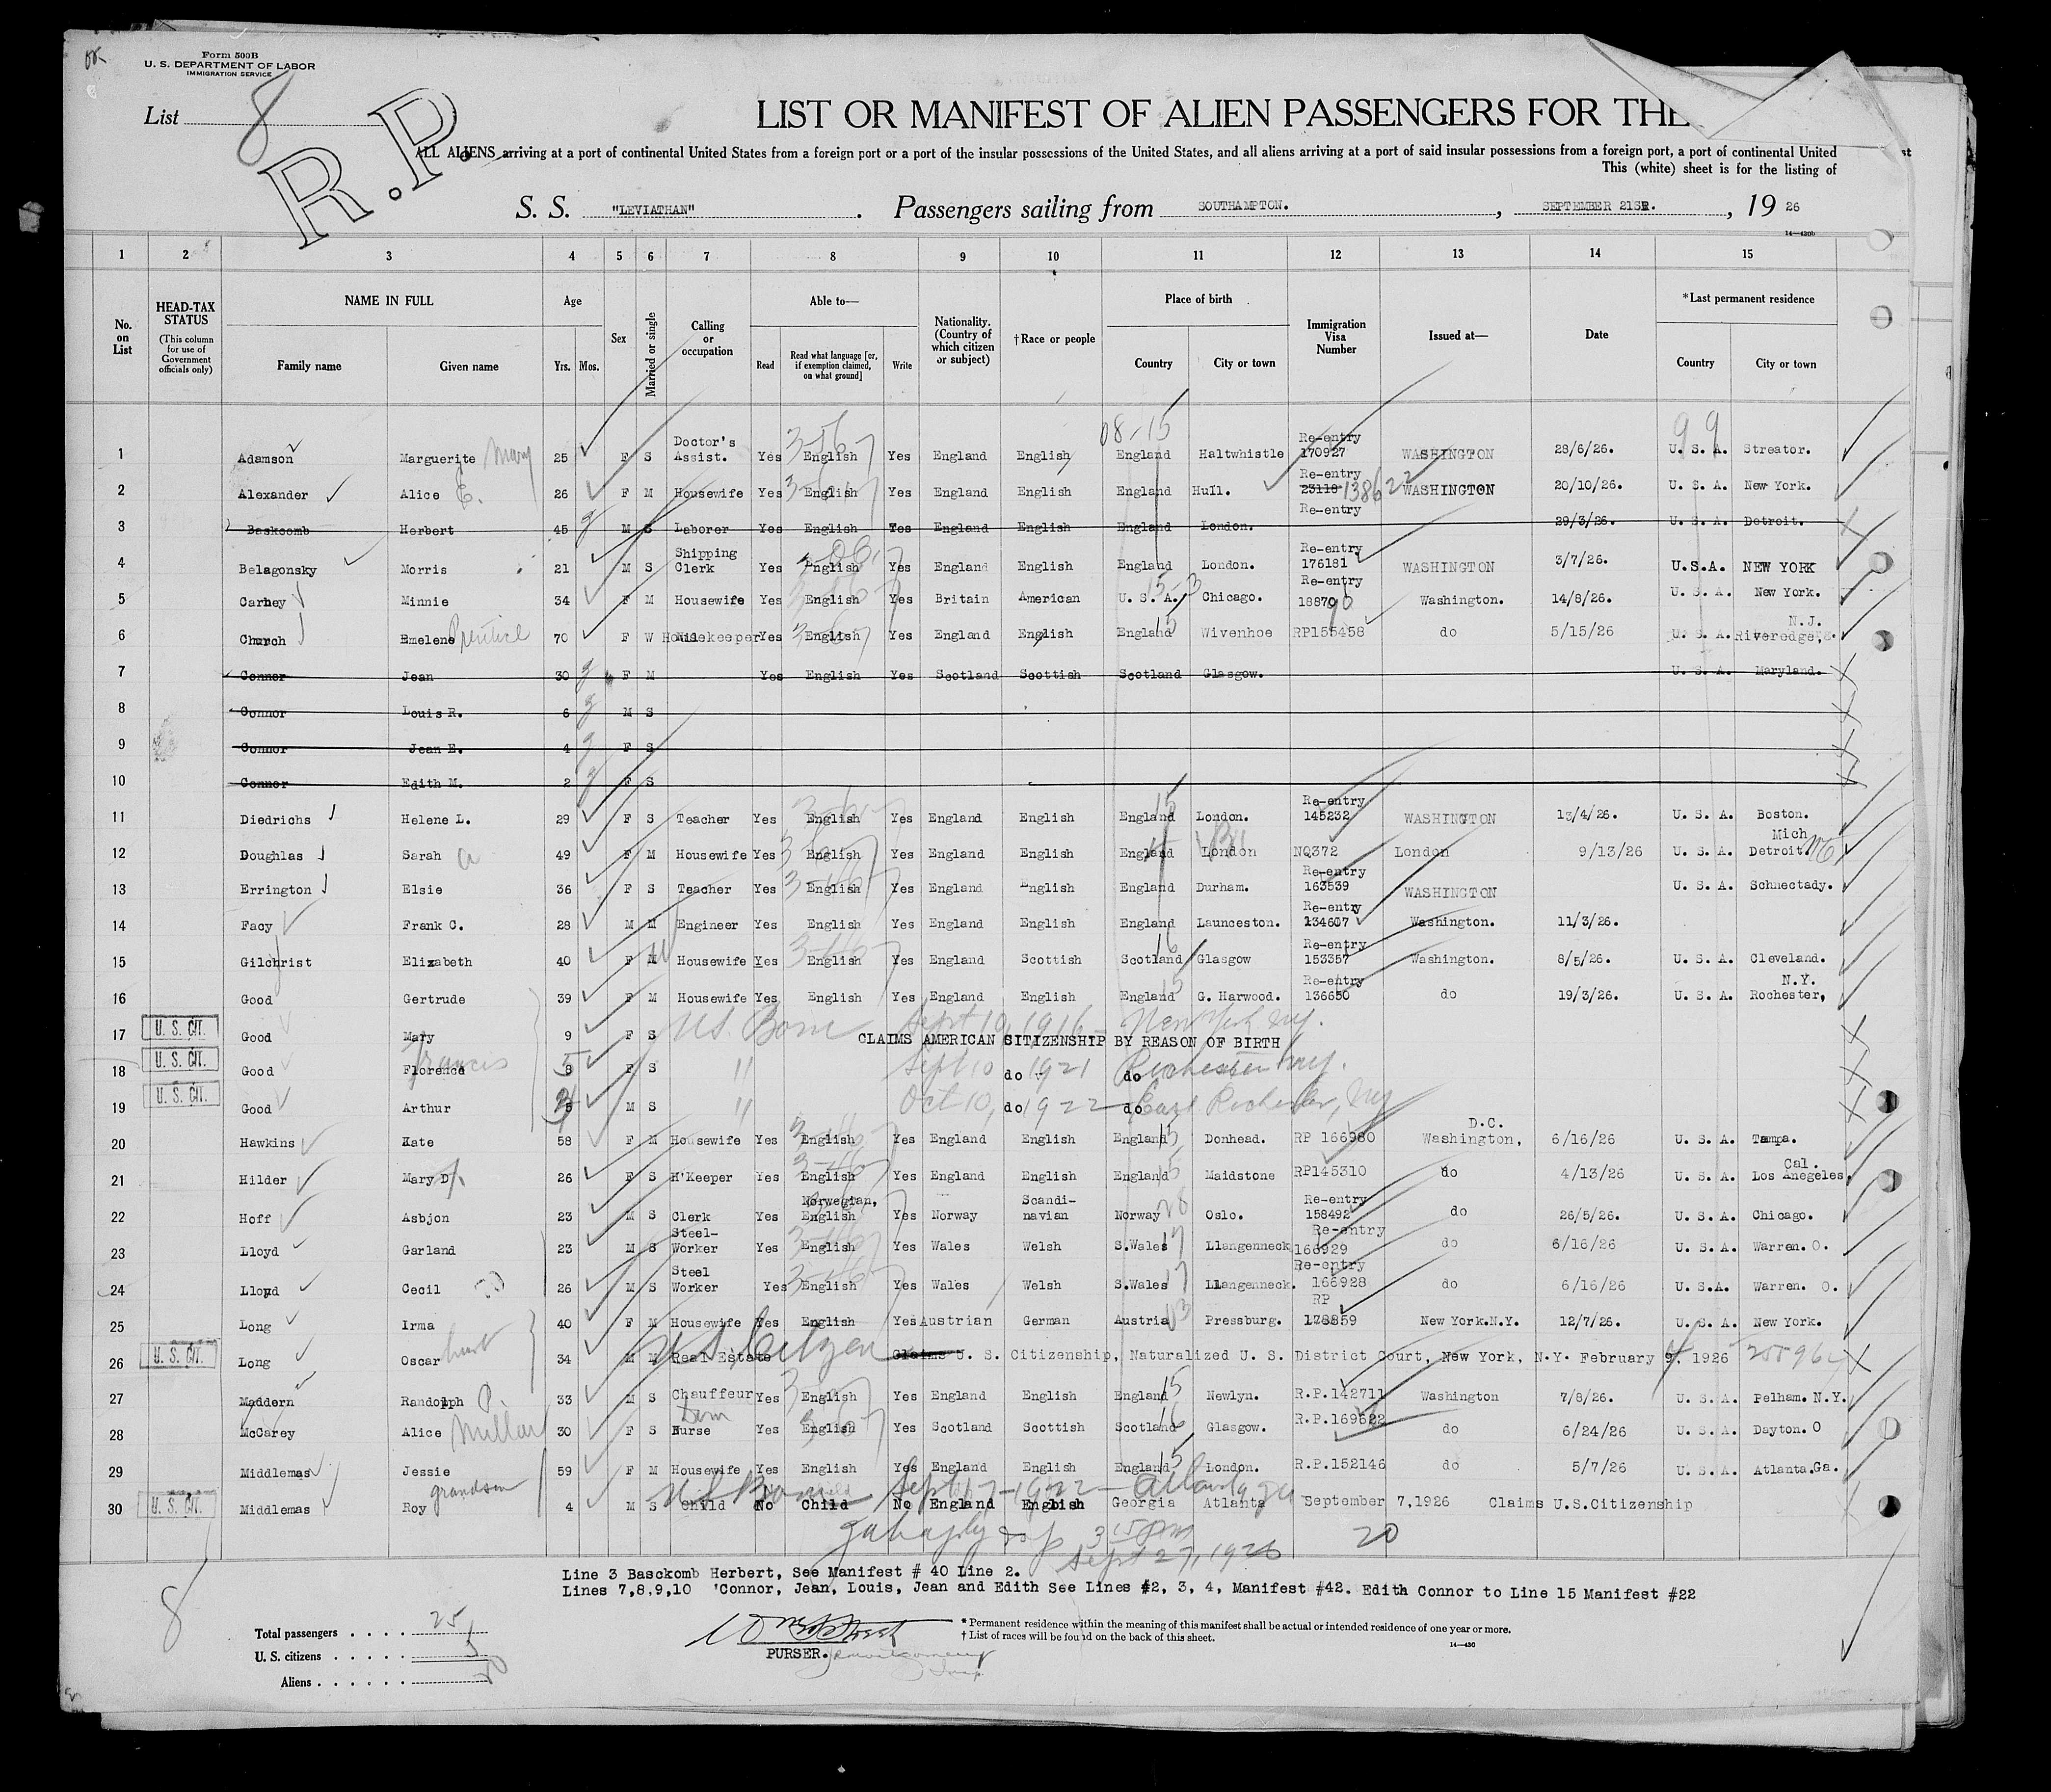 Form 500B
U. S. DEPARTMENT OF LABOR
IMMIGRATION SERVICE
List 8
R.P.
LIST OR MANIFEST OF ALIEN PASSENGERS FOR THE
ALL ALIENS arriving at a port of continental United States from a foreign port or a port of the insular possessions of the United States, and all aliens arriving at a port of said insular possessions from a foreign port, a port of continental United
This (white) sheet is for the listing of
S. S. "LEVIATHAN". Passengers sailing from SOUTHAMPTON., SEPTEMBER 21ST., 19 26
14—430b
1 2 3 4 5 6 7 8 9 10 11 12 13 14 15
No. on List
HEAD-TAX STATUS (This column for use of Government officials only)
NAME IN FULL Family name Given name
Age Yrs. Mos.
Sex
Married or single
Calling or occupation
Able to— Read Read what language [or, if exemption claimed, on what ground] Write
Nationality. (Country of which citizen or subject)
†Race or people
Place of birth Country City or town
Immigration Visa Number
Issued at—
Date
*Last permanent residence Country City or town
08-15 99
1 Adamson Marguerite Mary 25 F S Doctor's Assist. Yes English Yes England English England Haltwhistle Re-entry 170927 WASHINGTON 28/6/26. U. S. A. Streator.
2 Alexander Alice E. 26 F M Housewife Yes English Yes England English England Hull. Re-entry 23118 138622 WASHINGTON 20/10/26. U. S. A. New York.
3 Baskcomb Herbert 45 M S Laborer Yes English Yes England English England London. Re-entry 29/3/26. U. S. A. Detroit.
4 Belagonsky Morris 21 M S Shipping Clerk Yes English Yes England English England London. Re-entry 176181 WASHINGTON 3/7/26. U.S.A. NEW YORK
5 Carhey Minnie 34 F M Housewife Yes English Yes Britain American U. S. A. Chicago. Re-entry 18870 Washington. 14/8/26. U. S. A. New York.
6 Church Emelene 70 F W Housekeeper Yes English Yes England English England Wivenhoe RP155458 do 5/15/26 U. S. A. Riveredge, N.J.
7 Connor Jean 30 F M Yes English Yes Scotland Scottish Scotland Glasgow. U. S. A. Maryland.
8 Connor Louis R. 6 M S
9 Connor Jean E. 4 F S
10 Connor Edith M. 2 F S
11 Diedrichs Helene L. 29 F S Teacher Yes English Yes England English England London. Re-entry 145232 WASHINGTON 13/4/26. U. S. A. Boston.
12 Doughlas Sarah a 49 F M Housewife Yes English Yes England English England London NQ372 London 9/13/26 U. S. A. Detroit. Mich
13 Errington Elsie 36 F S Teacher Yes English Yes England English England Durham. Re-entry 163539 WASHINGTON U. S. A. Schnectady.
14 Facy Frank C. 28 M M Engineer Yes English Yes England English England Launceston. Re-entry 134607 Washington. 11/3/26.
15 Gilchrist Elizabeth 40 F M Housewife Yes English Yes England Scottish Scotland Glasgow Re-entry 153357 Washington. 8/5/26. U. S. A. Cleveland.
16 Good Gertrude 39 F M Housewife Yes English Yes England English England G. Harwood. Re-entry 136650 do 19/3/26. U. S. A. Rochester, N.Y.
17 U. S. CIT. Good Mary 9 F S US. Born Sept 10, 1916 - New York Ny.
CLAIMS AMERICAN CITIZENSHIP BY REASON OF BIRTH
18 U. S. CIT. Good Florence Francis 5 F S " Sept 10 do 1921 do Rochester Ny.
19 U. S. CIT. Good Arthur M S " Oct 10, do 1922 do East Rochester, Ny
20 Hawkins Kate 58 F M Housewife Yes English Yes England English England Donhead. RP 166980 Washington, D.C. 6/16/26 U. S. A. Tampa.
21 Hilder Mary D. 26 F S H'Keeper Yes English Yes England English England Maidstone RP145310 do 4/13/26 U. S. A. Los Anegeles, Cal.
22 Hoff Asbjon 23 M S Clerk Yes Norwegian, English Yes Norway Scandi-navian Norway Oslo. Re-entry 158492 do 26/5/26. U. S. A. Chicago.
23 Lloyd Garland 23 M S Steel-Worker Yes English Yes Wales Welsh S.Wales Llangenneck Re-entry 166929 do 6/16/26 U. S. A. Warren. O.
24 Lloyd Cecil 26 M S Steel Worker Yes English Yes Wales Welsh S.Wales Llangenneck. Re-entry 166928 do 6/16/26 U.S.A. Warren. O.
25 Long Irma 40 F M Housewife Yes English Yes Austrian German Austria Pressburg. RP 178859 New York.N.Y. 12/7/26. U. S. A. New York.
26 U. S. CIT. Long Oscar 34 M M Real Estate US Citizen Claims U. S. Citizenship, Naturalized U. S. District Court, New York, N.Y. February 9, 1926
27 Maddern Randolph P. 33 M S Chauffeur Yes English Yes England English England Newlyn. R.P.142711 Washington 7/8/26. U. S. A. Pelham. N.Y.
28 McCarey Alice Millar 30 F S Nurse Yes English Yes Scotland Scottish Scotland Glasgow. R.P.169522 do 6/24/26 U. S. A. Dayton. O
29 Middlemas Jessie 59 F M Housewife Yes English Yes England English England London. R.P.152146 do 5/7/26 U. S. A. Atlanta. Ga.
30 U. S. CIT. Middlemas Roy grandson 4 M S Child No Child No England English Georgia Atlanta September 7,1926 Claims U.S.Citizenship
US Born Sept 17-1922 - Atlanta Ga
3 15 pm
Sept 27, 1926
20
Line 3 Basckomb Herbert, See Manifest # 40 Line 2.
Lines 7,8.9,10 'Connor, Jean, Louis, Jean and Edith See Lines #2, 3, 4, Manifest #42. Edith Connor to Line 15 Manifest #22
8
Total passengers . . . . 25
U. S. citizens . . . . . 5
Aliens . . . . . . 20
PURSER.
* Permanent residence within the meaning of this manifest shall be actual or intended residence of one year or more.
† List of races will be found on the back of this sheet.
14—430